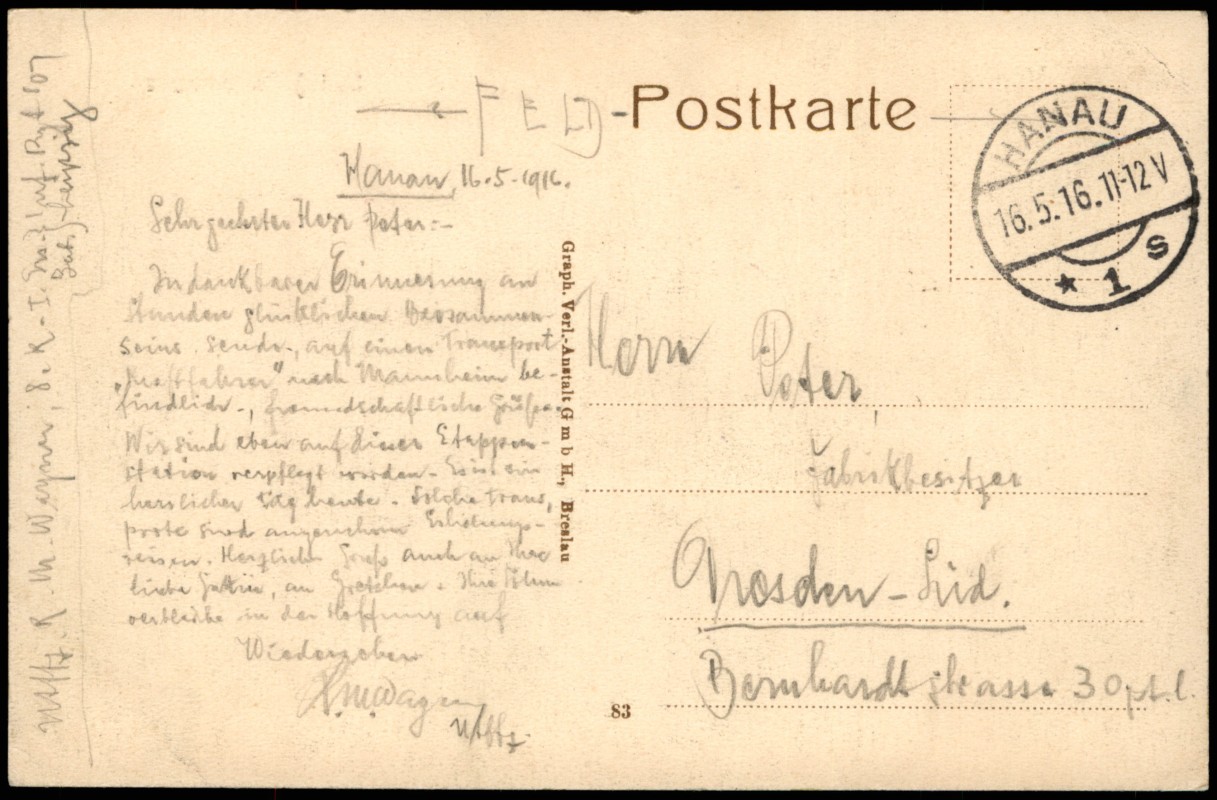 FELD-Postkarte
HANAU
16.5.16.11-12 V
* 1 s
Hanau, 16.5.1916.
Sehr geehrter Herr Peter:-
In dankbarer Erinnerung an
Stunden glücklichen Beisammen-
seins sende, auf einem Transport
„Kraftfahrer" nach Mannheim be-
findlich, freundschaftliche Grüße.
Wir sind eben auf dieser Etappen-
station verpflegt worden. Es ist ein
herrlicher Tag heute. Solche Trans,
porte sind angenehme Erholungs-
reisen. Herzliche Grüße auch an Ihre
liebe Gattin, an Gretchen.
verbleibe in der Hoffnung auf
Wiedersehen
Uffz.
Uffz. R. M. Wagner, 8. K. I. Ers.
Inf. Rgt 107
Leipzig
Graph. Verl.-Anstalt G m b H., Breslau
83
Herrn Peter,
Fabrikbesitzer
Dresden-Süd.
Bernhardtstrasse 30 pt. l.